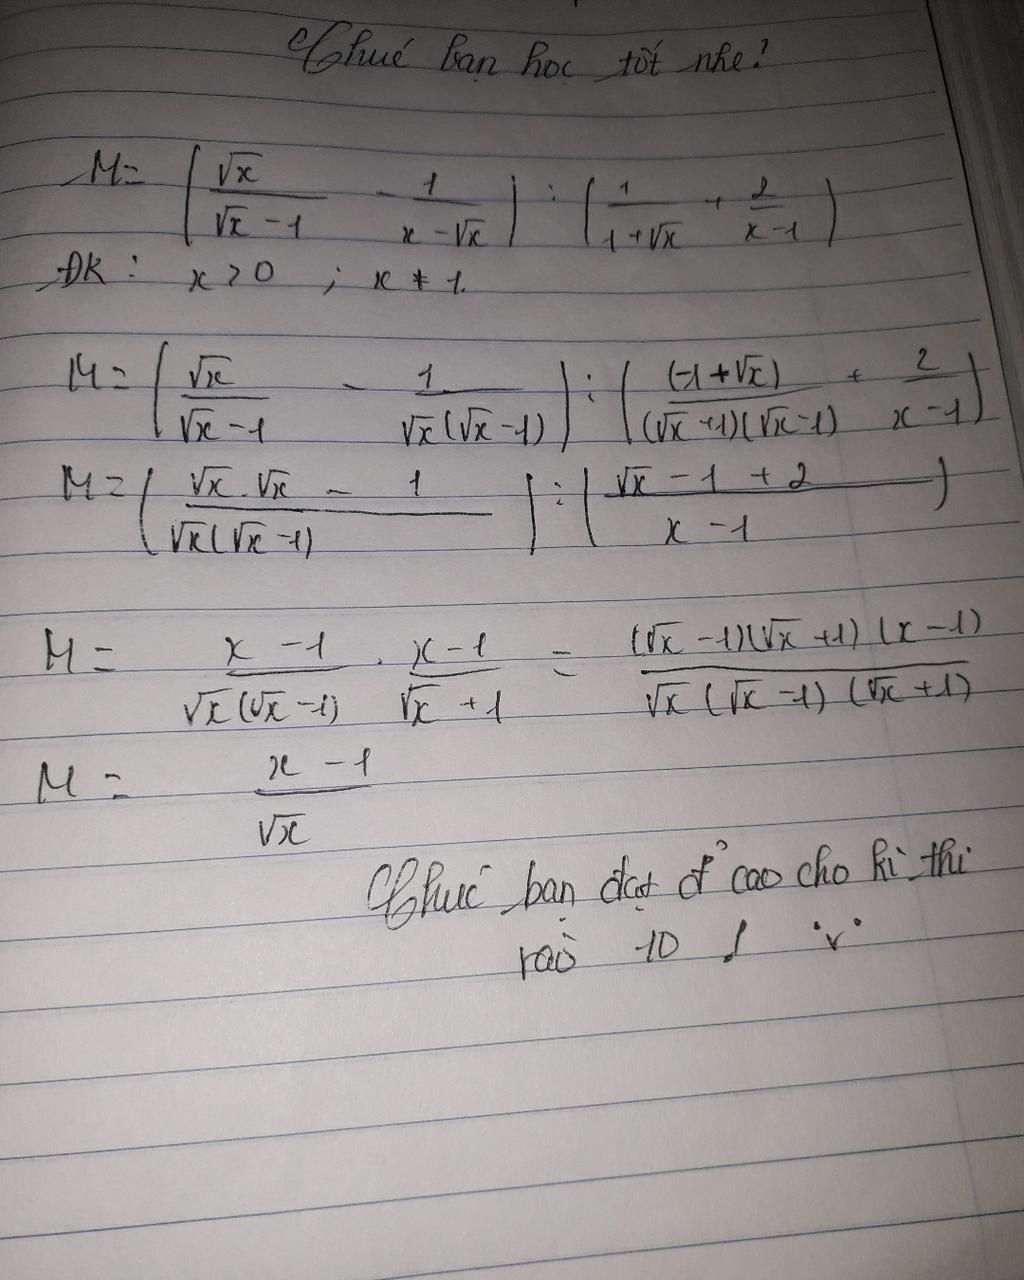 Chúc bạn học tốt nhe!
M = (√x / (√x - 1) - 1 / (x - √x)) : (1 / (1 + √x) + 2 / (x - 1))
ĐK : x > 0 ; x ≠ 1.
M = (√x / (√x - 1) - 1 / (√x(√x - 1))) : ((-1 + √x) / ((√x + 1)(√x - 1)) + 2 / (x - 1))
M = ((√x . √x - 1) / (√x(√x - 1))) : ((√x - 1 + 2) / (x - 1))
M = (x - 1) / (√x(√x - 1)) . (x - 1) / (√x + 1) = ((√x - 1)(√x + 1)(x - 1)) / (√x(√x - 1)(√x + 1))
M = (x - 1) / √x
Chúc bạn đạt đ' cao cho kì thi
vào 10 !